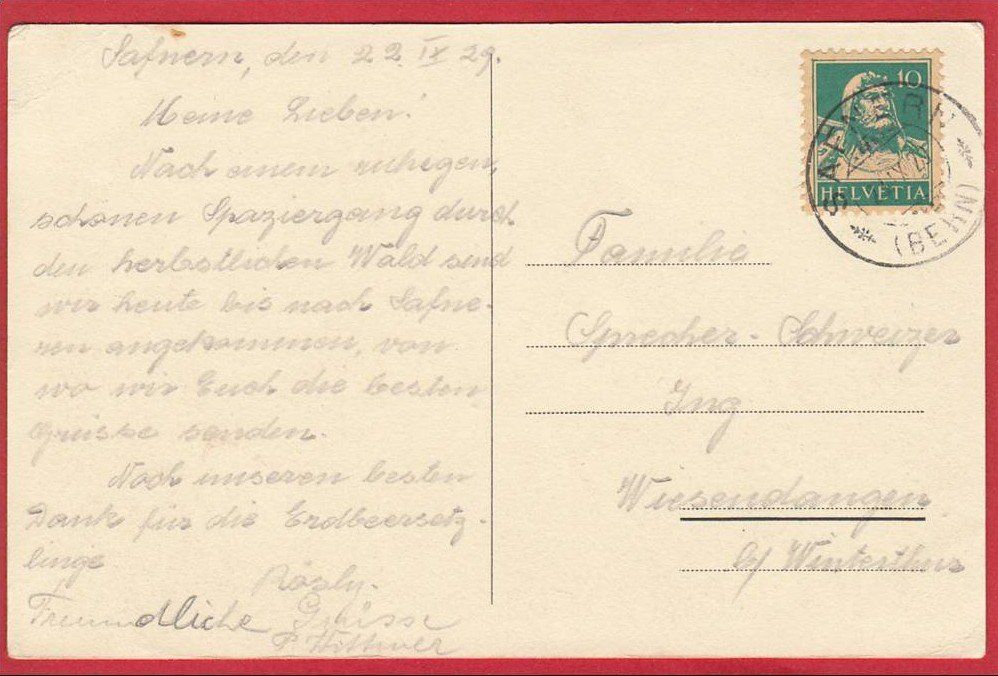 Safnern, den 22. IX 29.
Meine Lieben!
Nach einem ruhigen,
schönen Spaziergang durch
den herbstlichen Wald sind
wir heute bis nach Safne-
ren angekommen, von
wo wir Euch die besten
Grüsse senden.
Noch unseren besten
Dank für die Erdbeersetz-
linge
Rösly.
Freundliche Grüsse
P. Wittwer
10
HELVETIA
SAFNERN
(BERN)
Familie
Sprecher-Schweizer
Ing
Wiesendangen
b/ Winterthur